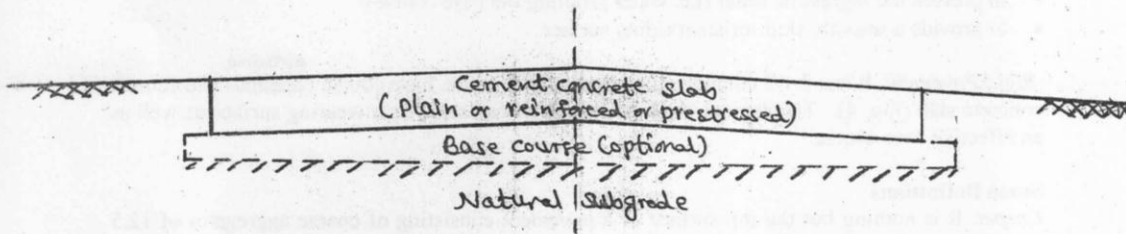 Cement concrete slab
(plain or reinforced or prestressed)
Base course (optional)
Natural subgrade